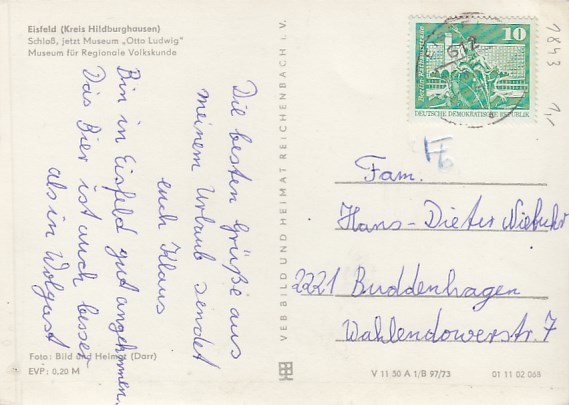 Eisfeld (Kreis Hildburghausen)
Schloß, jetzt Museum „Otto Ludwig"
Museum für Regionale Volkskunde
Die besten Grüße aus
meinem Urlaub sendet
euch Klaus
Bin in Eisfeld gut angekommen.
Das Bier ist auch besser
als in Wolgast
Foto: Bild und Heimat (Darr)
EVP: 0,20 M
VEB BILD UND HEIMAT REICHENBACH i. V.
10
DEUTSCHE DEMOKRATISCHE REPUBLIK
612
1843
Fam.
Hans-Dieter Niebuhr
2221 Buddenhagen
Wahlendowerstr. 7
V 11 50 A 1/B 97/73
01 11 02 068